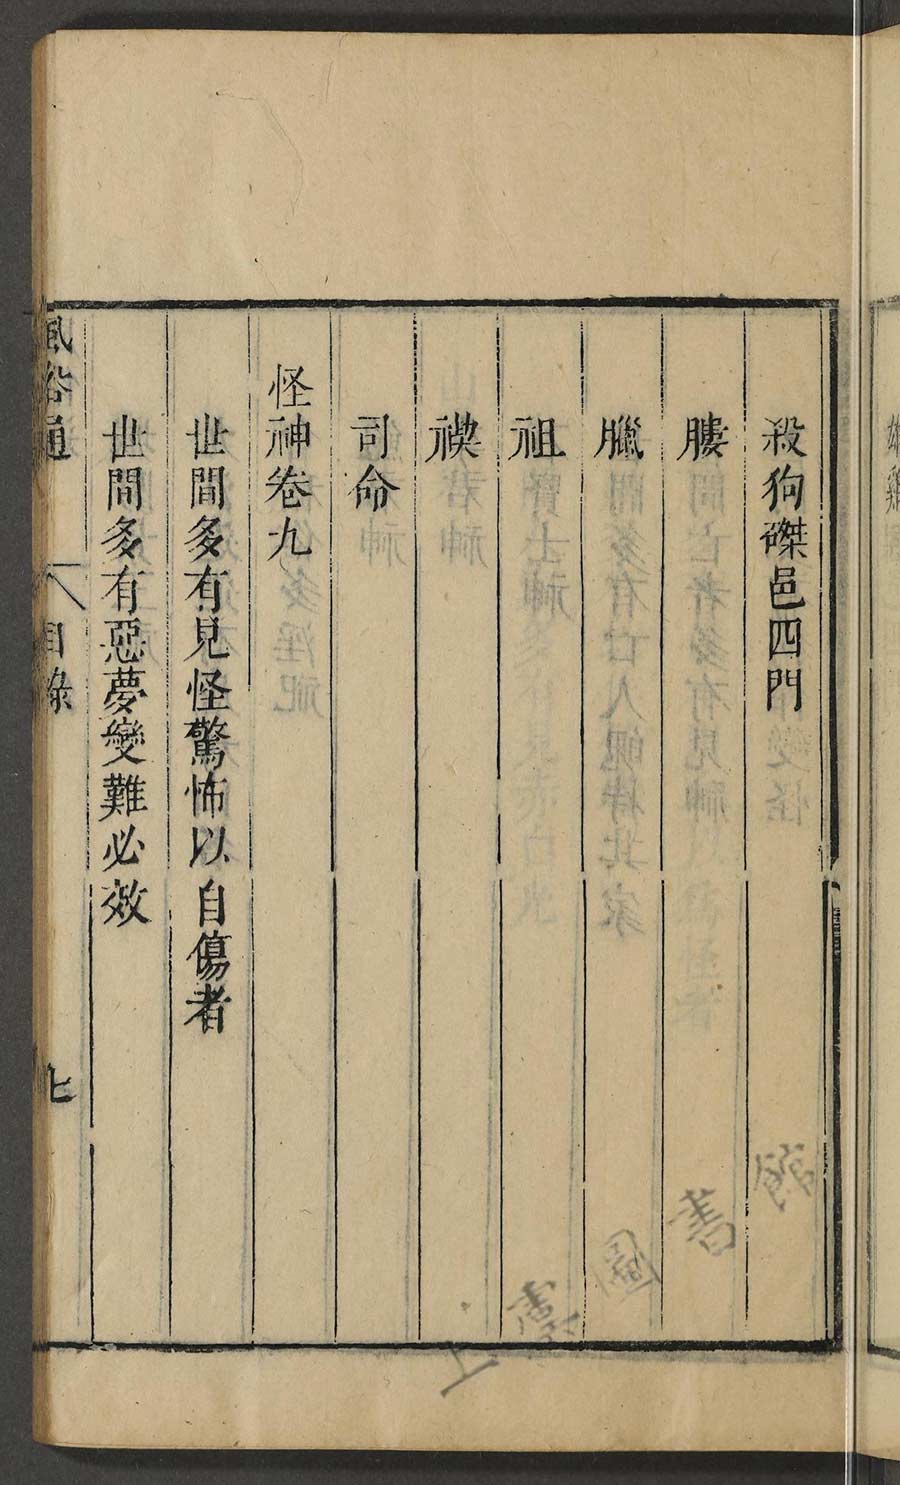 殺狗磔邑四門
膢
臘
祖
禊
司命
怪神卷九
世間多有見怪驚怖以自傷者
世間多有惡夢變難必效
風俗通
目錄
七